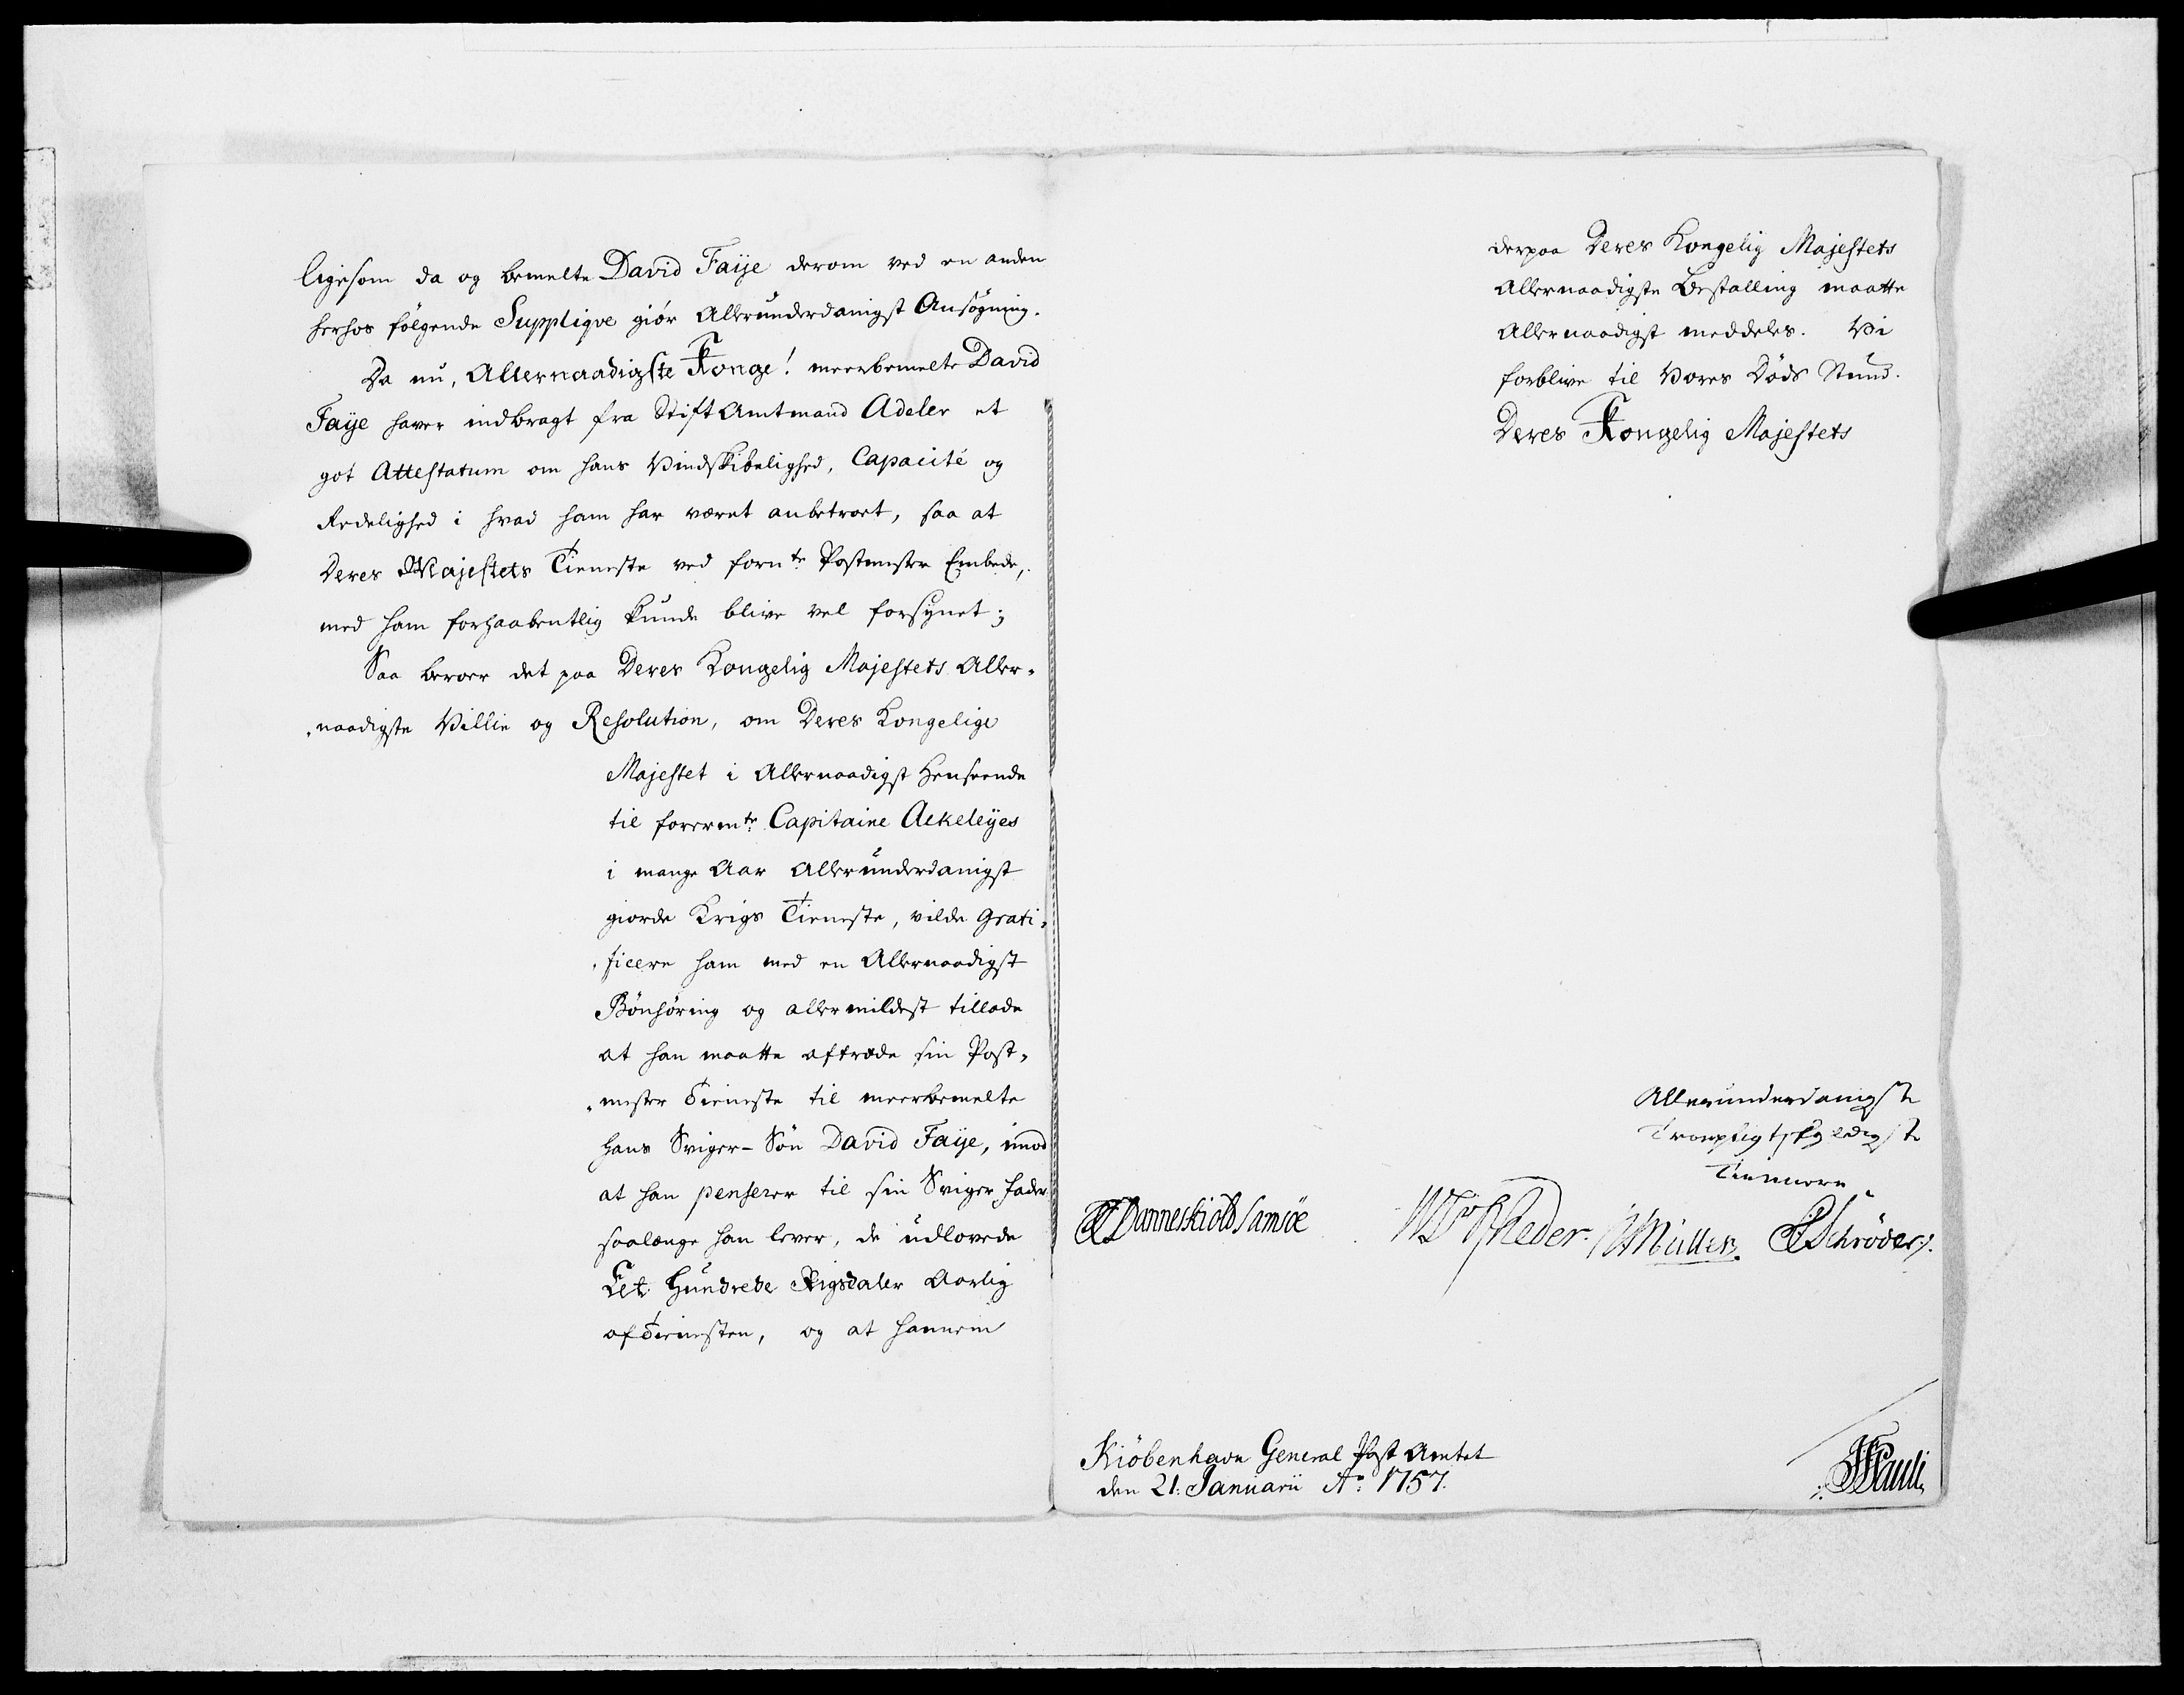 ligesom da og bemelte David Faÿe derom ved en anden
herhos følgende Suppliqve giør Allerunderdanigst Ansøgning.
Da nu, Allernaadigste Konge! meerbemelte David
Faÿe haver indbragt fra Stift Amtmand Adeler et
got Attestatum om hans Vindskibelighed, Capacité og
Redelighed i hvad ham har været anbetroet, saa at
Deres Majestets Tieneste ved fornte Postmester Embede,
med ham forhaabentlig kunde blive vel forsynet;
Saa beroer det paa Deres Kongelig Majestets Aller-
naadigste Villie og Resolution, om Deres Kongelige
Majestet i Allernaadigst Henseende
til forermte Capitaine Aekeleÿes
i mange Aar Allerunderdanigst
giorde Krigs Tieneste, vilde grati-
ficere ham med en Allernaadigst
Bønhøring og allermildest tillade
at han maatte aftræde sin Post-
mester Tieneste til meerbemelte
hans Sviger-Søn David Faÿe, imod
at han penserer til sin Sviger fader
saalænge han lever, de udlovede
Eet Hundrede Rigsdaler Aarlig
af Tienesten, og at hannem
derpaa Deres Kongelig Majestets
Allernaadigste Bestalling maatte
Allernaadigst meddeles. Vi
forblive til Vores Døds Stund.
Deres Kongelig Majestets
Allerunderdanigste
Troepligtskyldigste
Tiennere
Danneskiold Samsöe
Rheder. Müller. Schröder.
Kiöbenhavn General Post Amtet
den 21: Januarii Ao: 1757.
Pauli